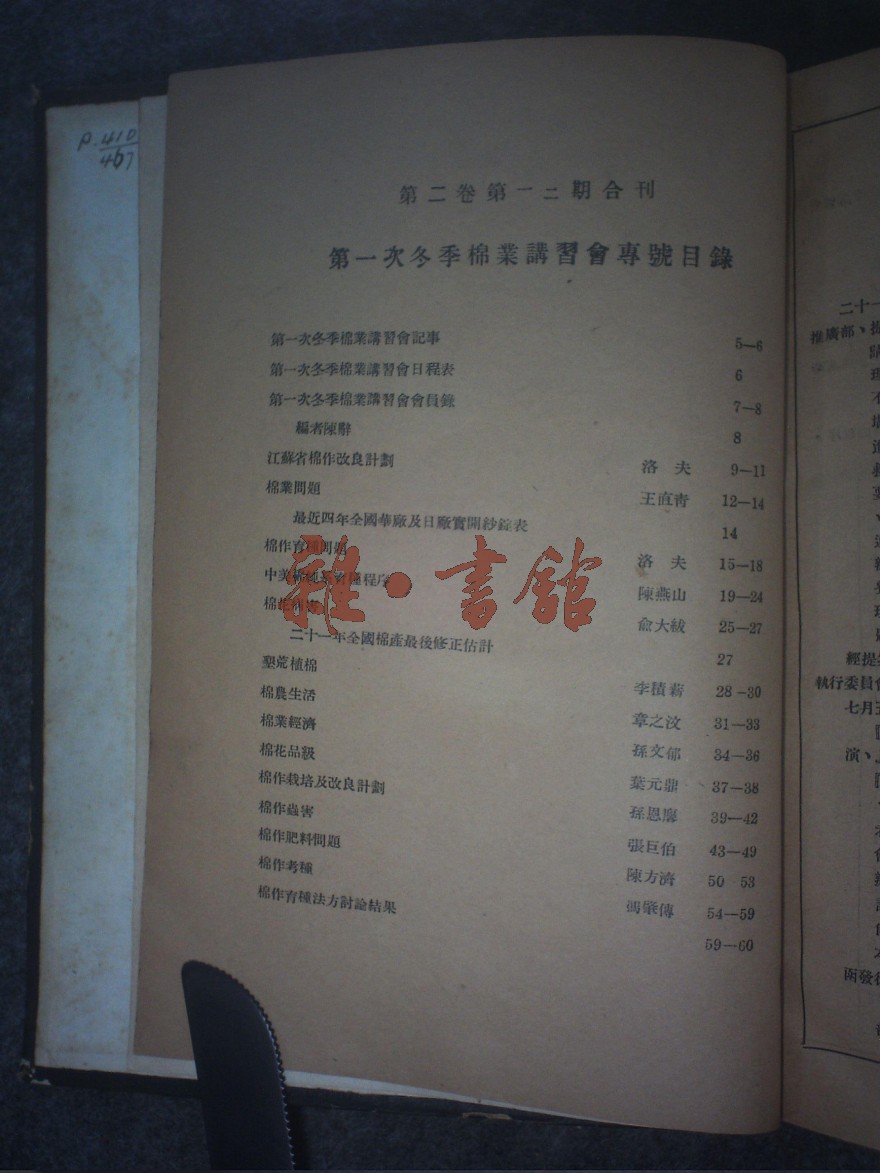 P.410
467
第二卷第一二期合刊
第一次冬季棉業講習會專號目錄
第一次冬季棉業講習會記事 5—6
第一次冬季棉業講習會日程表 6
第一次冬季棉業講習會會員錄 7—8
編者陳辭 8
江蘇省棉作改良計劃 洛夫 9—11
棉業問題 王直靑 12—14
最近四年全國華廠及日廠實開紗錠表 14
棉作育種問題 洛夫 15—18
中美棉育種程序 陳燕山 19—24
棉作病害 俞大紱 25—27
二十一年全國棉產最後修正估計 27
墾荒植棉 李積新 28—30
棉農生活 章之汶 31—33
棉業經濟 孫文郁 34—36
棉花品級 葉元鼎 37—38
棉作栽培及改良計劃 孫恩麐 39—42
棉作蟲害 張巨伯 43—49
棉作肥料問題 陳方濟 50 53
棉作考種 馮肇傳 54—59
棉作育種法方討論結果 59—60
雜·書館
二十一
推廣部、提
經提
執行委員會
七月五
演、
函發